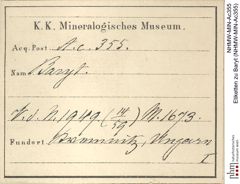 K. K. Mineralogisches Museum.
Acq. Post. A. c. 355.
Nam Baryt.
V. d. N. 1949 (14/59) M. 1673.
Fundort Kremnitz, Ungarn
I
NHMW-MIN-Ac355
Etiketten zu Baryt (NHMW-MIN-Ac355)
nhm